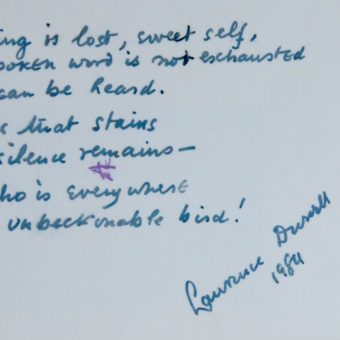 ing is lost, sweet self,
poken word is not exhausted
can be heard.
k that stains
silence remains—
ho is everywhere
unbeckonable bird!
Lawrence Durrell
1984